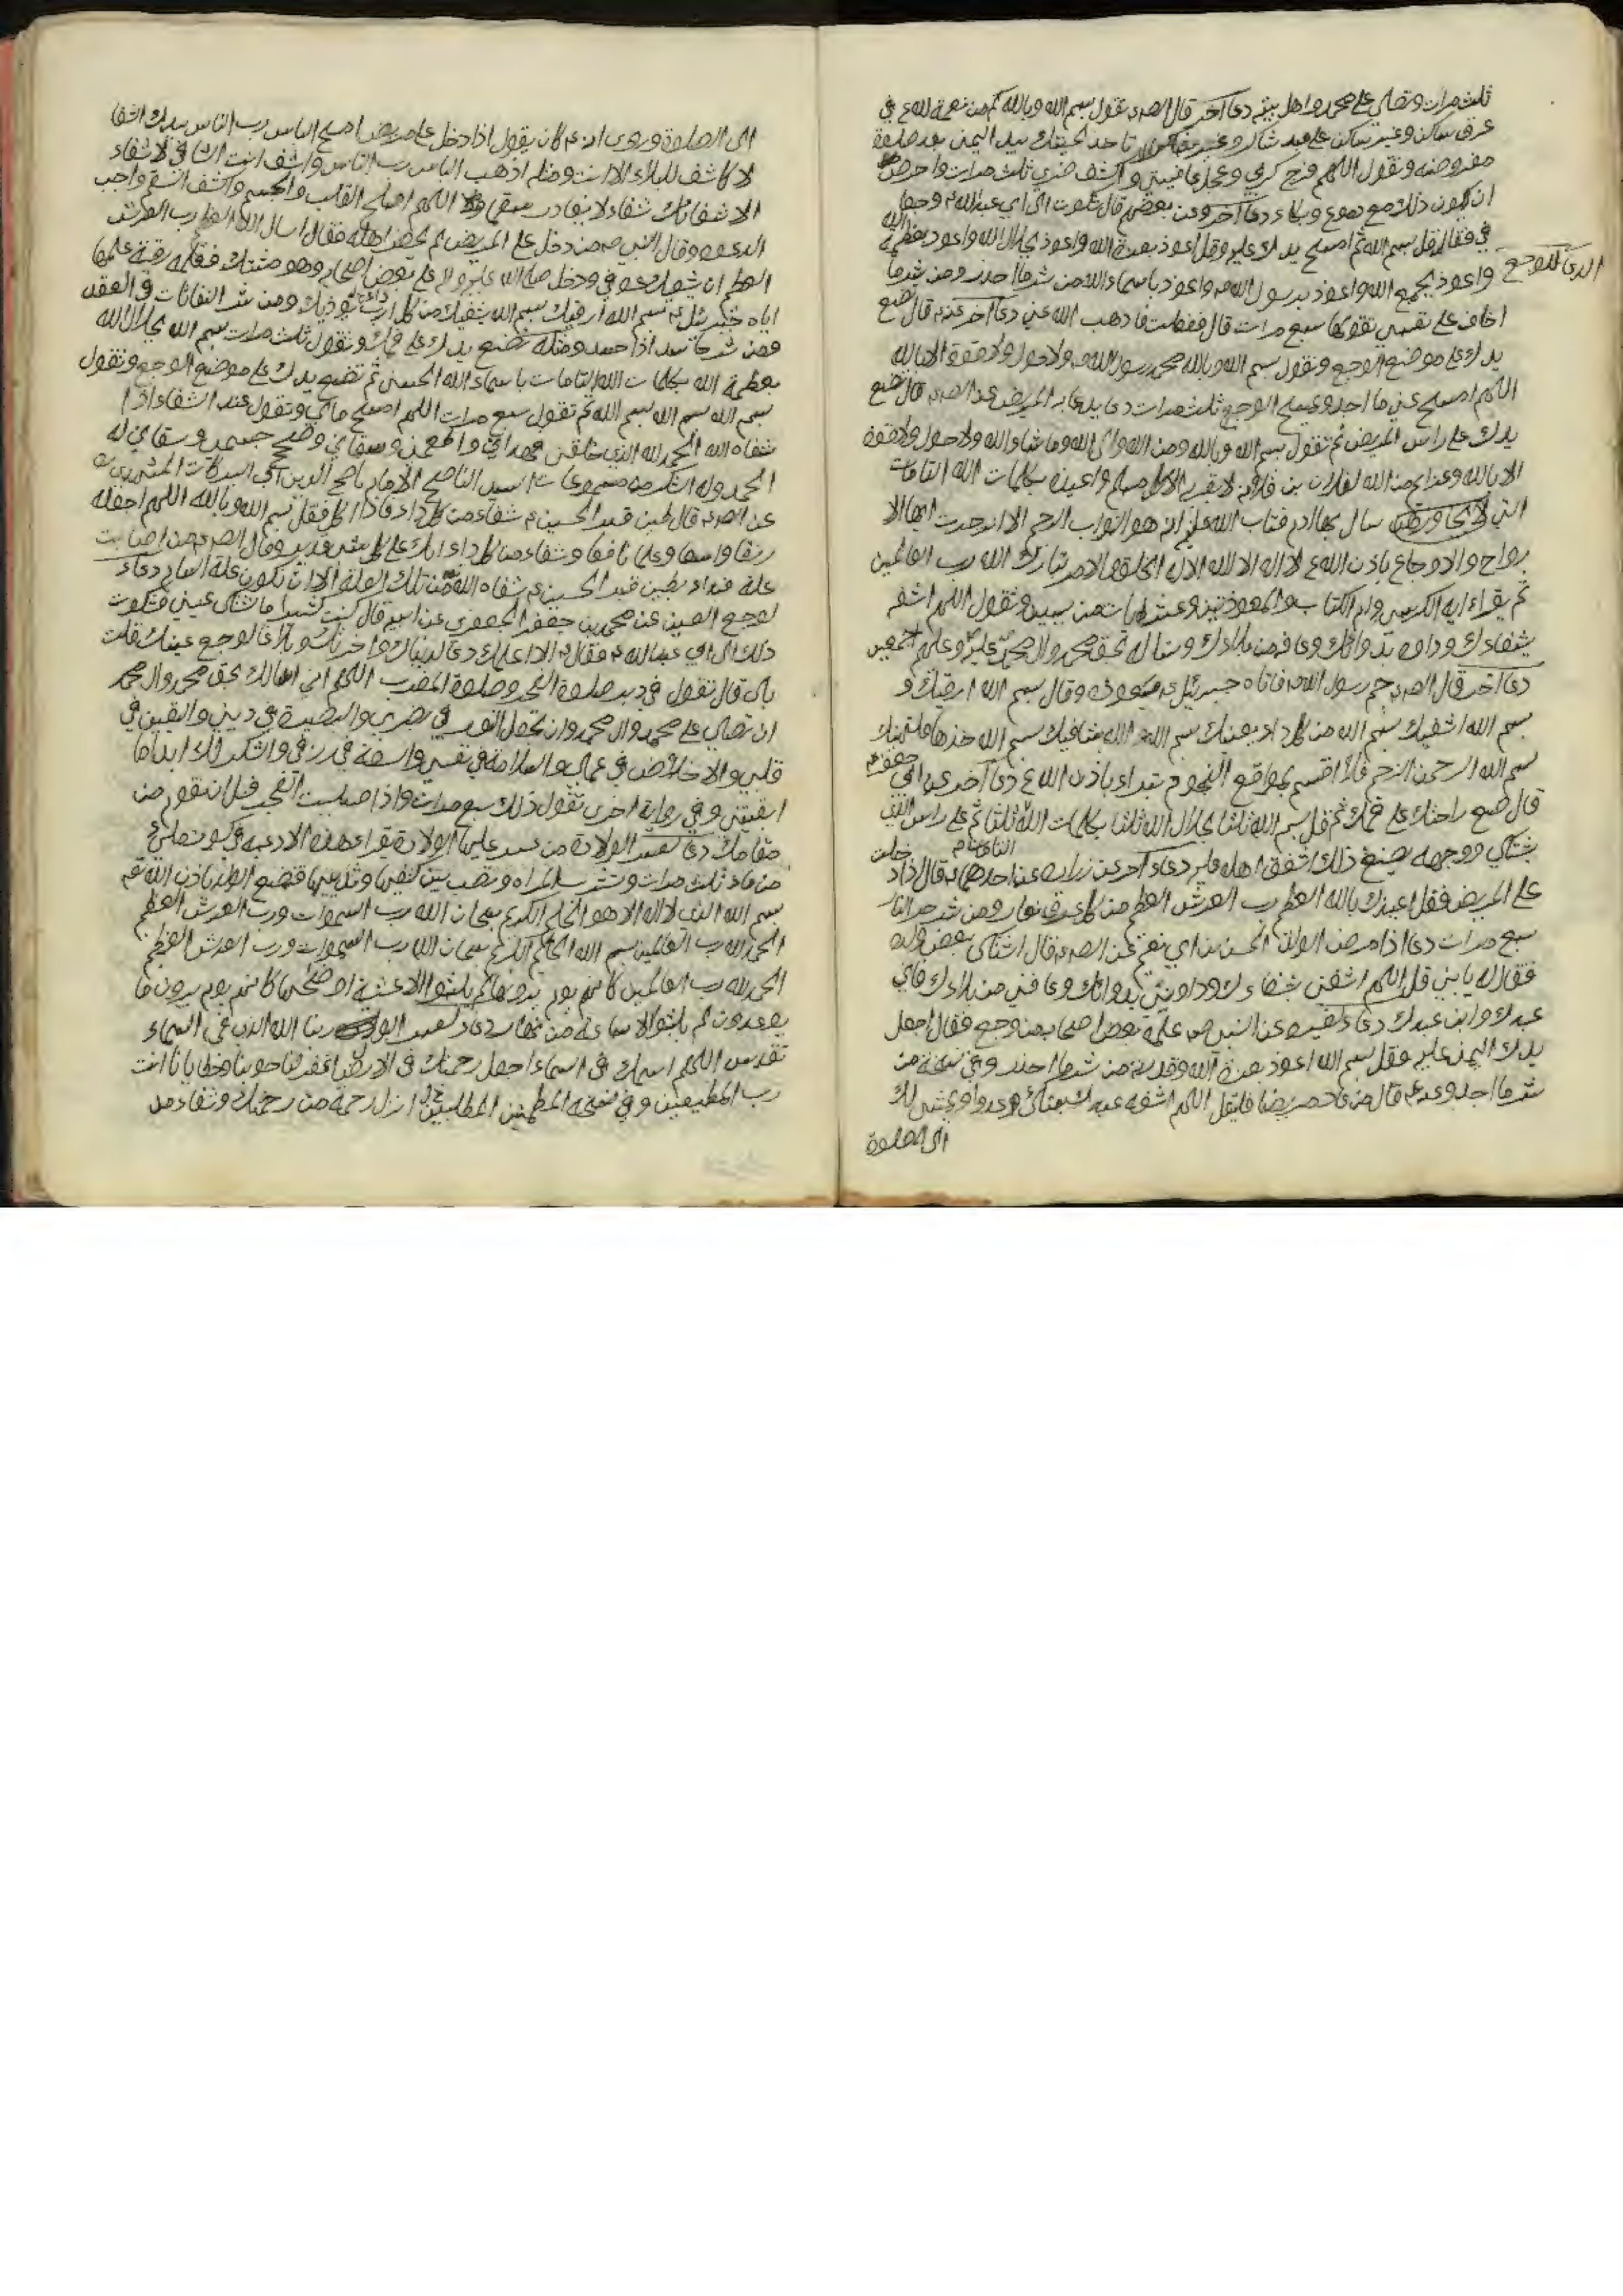 ثلث مرات وتصلي على محمد واهل بيته دعا آخر قال الصم تقول بسم الله وبالله كم من نعمة لله ع في
عرق ساكن وغير ساكن على عبد شاكر وغير شاكر تاخذ لحيتك بيد اليمن بعد صلوة
مفروضه وتقول اللهم فرج كربي وعجل عافيتي واكشف ضري ثلث مرات واحرص
ان يكون ذلك مع دموع وبكاء دعا آخر وعن بعضهم قال شكوت الى ابي عبد الله م وجعا
في فقال قل بسم الله ثم امسح يدك عليه وقل اعوذ بعزة الله واعوذ بجلال الله واعوذ بعظمة الله
واعوذ بجمع الله واعوذ برسول الله ص واعوذ باسماء الله من شر ما احذر ومن شر ما
الدعا للوجع
اخاف على نفسي تقولها سبع مرات قال ففعلت فاذهب الله عني دعا آخر عنه م قال ضع
يدك على موضع الوجع وتقول بسم الله وبالله محمد رسول الله ص ولا حول ولا قوة الا بالله
اللهم امسح عني ما اجد وتمسح الوجع ثلث مرات دعا يدعا به المريض عن الصم قال ضع
يدك على راس المريض ثم تقول بسم الله وبالله ومن الله والى الله وما شاء الله ولا حول ولا قوة
الا بالله وعزايم من الله لفلان بن فلانه لا يقربه الا كل مسلم واعيذه بكلمات الله التامات
التي سال بها ادم فتاب الله عليه انه هو التواب الرحيم الا انزجرت ايها الا
رواح والاوجاع باذن الله ع لا اله الا الله الا له الخلق والامر تبارك الله رب العالمين
ثم يقراء ايه الكرسي وام الكتاب والمعوذتين وعشر ايات من يس وتقول اللهم اشفه
بشفاءك وداوه بدوائك وعافه من بلاءك وتساله بحق محمد وال محمد عليه وعليهم اجمعين
دعا آخر قال الصم حم رسول الله ص فاتاه جبرئيل م فيعوذه وقال بسم الله ارقيك و
بسم الله اشفيك بسم الله من كل داء يعنيك بسم الله والله شافيك بسم الله خذها فلتهنيك
بسم الله الرحمن الرحيم فلا اقسم بمواقع النجوم تبراء باذن الله ع دعا آخر عن ابي جعفر م
قال ضع راحتك على فمك ثم قل بسم الله ثلثا بجلال الله ثلثا بكلمات الله التامات ثلثا ثم على راس الذي
يشتكي ووجهه يصنع ذلك اشفق اهله عليه دعاء آخر عن زراره عن احدهما م قال اذا دخلت
على المريض فقل اعيذك بالله العظيم رب العرش العظيم من كل عرق نعار ومن شر حر النار
سبع مرات دعا اذا مرض الولد الحسن بن ابي نعيم عن الصم قال اشتكى بعض ولده
فقال له يا بني قل اللهم اشفني بشفاءك وداوني بدوائك وعافني من بلاءك فاني
عبدك وابن عبدك دعاء لغيره عن النبي ص علمه بعض اصحابه من وجع فقال اجعل
يدك اليمنى عليه وقل بسم الله اعوذ بعزة الله وقدرته من شر ما احذر وفي نسخة من
شر ما اجد وعنه م قال من عاد مريضا فليقل اللهم اشف عبدك ينكئ لك عدوا ويمشي لك
الى الصلوة
الى الصلوة وروى انه م كان يقول اذا دخل على مريض امسح الباس رب الناس بيدك الشفا
لا كاشف للبلاء الا انت ومثله اذهب الباس رب الناس واشف انت الشافي لا شفاء
الا شفائك شفاء لا يغادر سقما اللهم اصلح القلب والجسم واكشف السقم واجب
الدعوه وقال النبي ص من دخل على المريض لم يحضر اجله فقال اسال الله العظيم رب العرش
العظيم ان يشفيك عوفي ودخل صلى الله عليه واله على بعض اصحابه وهو مشتك فعلمه رقية علمها
اياه جبرئيل م بسم الله ارقيك بسم الله يشفيك من كل ارب يوذيك ومن شر النفاثات في العقد
ومن شر حاسد اذا حسد ومثله تضع يدك على فمك وتقول ثلث مرات بسم الله بجلال الله
بعظمة الله بكلمات الله التامات باسماء الله الحسنى ثم تضع يدك على موضع الوجع وتقول
بسم الله بسم الله بسم الله ثم تقول سبع مرات اللهم امسح ما بي وتقول عند الشفاء اذا
شفاه الله الحمد لله الذي خلقني فهداني واطعمني وسقاني وصحح جسمي وشفاني له
الحمد وله الشكر من مسموعات السيد الناصح الامام ناصح الدين ابي البركات المشهدي
عن الصم قال طين قبر الحسين م شفاء من كل داء فاذا اكل فقل بسم الله وبالله اللهم اجعله
رزقا واسعا وعلما نافعا وشفاء من كل داء انك على كل شيء قدير وقال الصم من اصابت
علة فبداء بطين قبر الحسين م شفاه الله من تلك العلة الا ان تكون علة السام دعاء
لوجع العين عن محمد بن جعفر الجعفري عن ابيه قال كنت كثيرا ما اشتكي عيني فشكوت
ذلك الى ابي عبد الله م فقال م الا اعلمك دعا لدنياك واخرتك وبلاغا لوجع عينك قلت
بلى قال تقول في دبر صلوة الفجر وصلوة المغرب اللهم اني اسالك بحق محمد وال محمد
ان تصلي على محمد وال محمد وان تجعل النور في بصري والبصيرة في ديني واليقين في
قلبي والاخلاص في عملي والسلامة في نفسي والسعة في رزقي والشكر لك ابدا ما
ابقيتني وفي رواية اخرى تقول ذلك سبع مرات واذا صليت الفجر قبل ان تقوم من
مقامك دعا لعسر الولادة من عسر عليها الولادة يقراء هذه الادعيه في كوز مليء
من ماء ثلث مرات وتشرب المراه وتصب بين كتفيها وثدييها فتضع الولد باذن الله تع
بسم الله الذي لا اله الا هو الحليم الكريم سبحان الله رب السموات ورب العرش العظيم
الحمد لله رب العالمين بسم الله الحليم الكريم سبحان الله رب السموات ورب العرش العظيم
الحمد لله رب العالمين كانهم يوم يرونها لم يلبثوا الا عشية او ضحيها كانهم يوم يرون ما
يوعدون لم يلبثوا الا ساعة من نهار دعاء لعسر ربنا الله الذي في السماء
تقدس اللهم اسمك في السماء اجعل رحمتك في الارض اغفر لنا حوبنا وخطايانا انت
رب المطيعين وفي نسخة المطلبين انزل رحمة من رحمتك وشفاء من